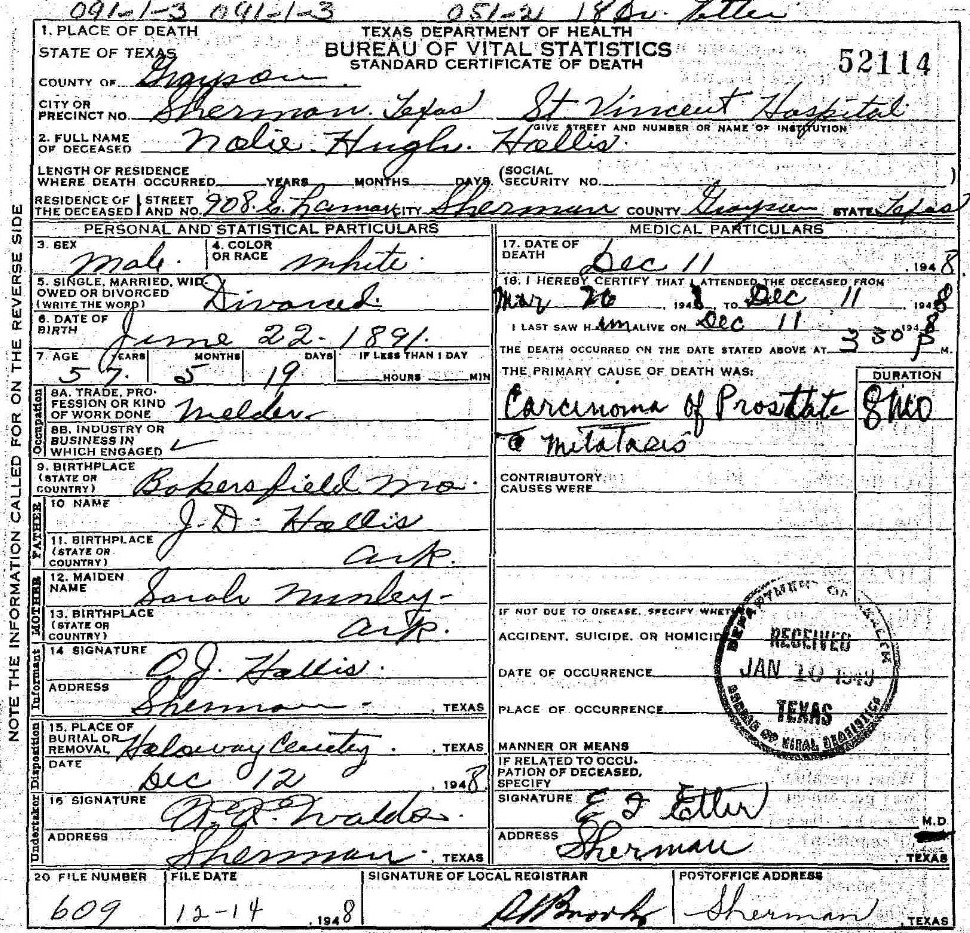 091-1-3 091-1-3 051-21 18 Dr. Etter
1. PLACE OF DEATH
STATE OF TEXAS
TEXAS DEPARTMENT OF HEALTH
BUREAU OF VITAL STATISTICS
STANDARD CERTIFICATE OF DEATH
52114
COUNTY OF Grayson
CITY OR PRECINCT NO. Sherman. Texas St Vincent Hospital
GIVE STREET AND NUMBER OR NAME OF INSTITUTION
2. FULL NAME OF DECEASED Nolie Hugh Hollis
LENGTH OF RESIDENCE WHERE DEATH OCCURRED YEARS MONTHS DAYS (SOCIAL SECURITY NO. )
RESIDENCE OF THE DECEASED STREET AND NO. 908. E. Lamar CITY Sherman COUNTY Grayson STATE Texas
NOTE THE INFORMATION CALLED FOR ON THE REVERSE SIDE
PERSONAL AND STATISTICAL PARTICULARS
3. SEX Male
4. COLOR OR RACE White
5. SINGLE, MARRIED, WIDOWED OR DIVORCED (WRITE THE WORD) Divorced
6. DATE OF BIRTH June 22-1891
7. AGE YEARS MONTHS DAYS IF LESS THAN 1 DAY
57 5 19 HOURS MIN
Occupation
8A. TRADE, PROFESSION OR KIND OF WORK DONE Welder
8B. INDUSTRY OR BUSINESS IN WHICH ENGAGED ✓
9. BIRTHPLACE (STATE OR COUNTRY) Bakersfield Mo.
FATHER
10 NAME J. D. Hollis
11. BIRTHPLACE (STATE OR COUNTRY) Ark.
MOTHER
12. MAIDEN NAME Sarah
13. BIRTHPLACE (STATE OR COUNTRY) Ark.
Informant
14 SIGNATURE Hollis
ADDRESS Sherman TEXAS
Disposition
15. PLACE OF BURIAL OR REMOVAL Holoway Cemetery TEXAS
DATE Dec 12 1948
Undertaker
16 SIGNATURE Waldo
ADDRESS Sherman. TEXAS
MEDICAL PARTICULARS
17. DATE OF DEATH Dec 11 1948.
18. I HEREBY CERTIFY THAT I ATTENDED THE DECEASED FROM
Mar 26 1948 TO Dec 11 1948
I LAST SAW HIM ALIVE ON Dec 11 1948
THE DEATH OCCURRED ON THE DATE STATED ABOVE AT 3 30 P M.
THE PRIMARY CAUSE OF DEATH WAS: DURATION
Carcinoma of Prostate 8 MO
c̄ Mitatasis
CONTRIBUTORY CAUSES WERE
IF NOT DUE TO DISEASE, SPECIFY WHETHER
ACCIDENT, SUICIDE, OR HOMICIDE
DATE OF OCCURRENCE
PLACE OF OCCURRENCE
MANNER OR MEANS
IF RELATED TO OCCUPATION OF DECEASED, SPECIFY
DEPARTMENT OF HEALTH
RECEIVED
JAN 10 1949
TEXAS
BUREAU OF VITAL STATISTICS
SIGNATURE E F Etter M.D.
ADDRESS Sherman TEXAS
20 FILE NUMBER FILE DATE SIGNATURE OF LOCAL REGISTRAR POSTOFFICE ADDRESS
609 12-14 1948 Brooks Sherman TEXAS